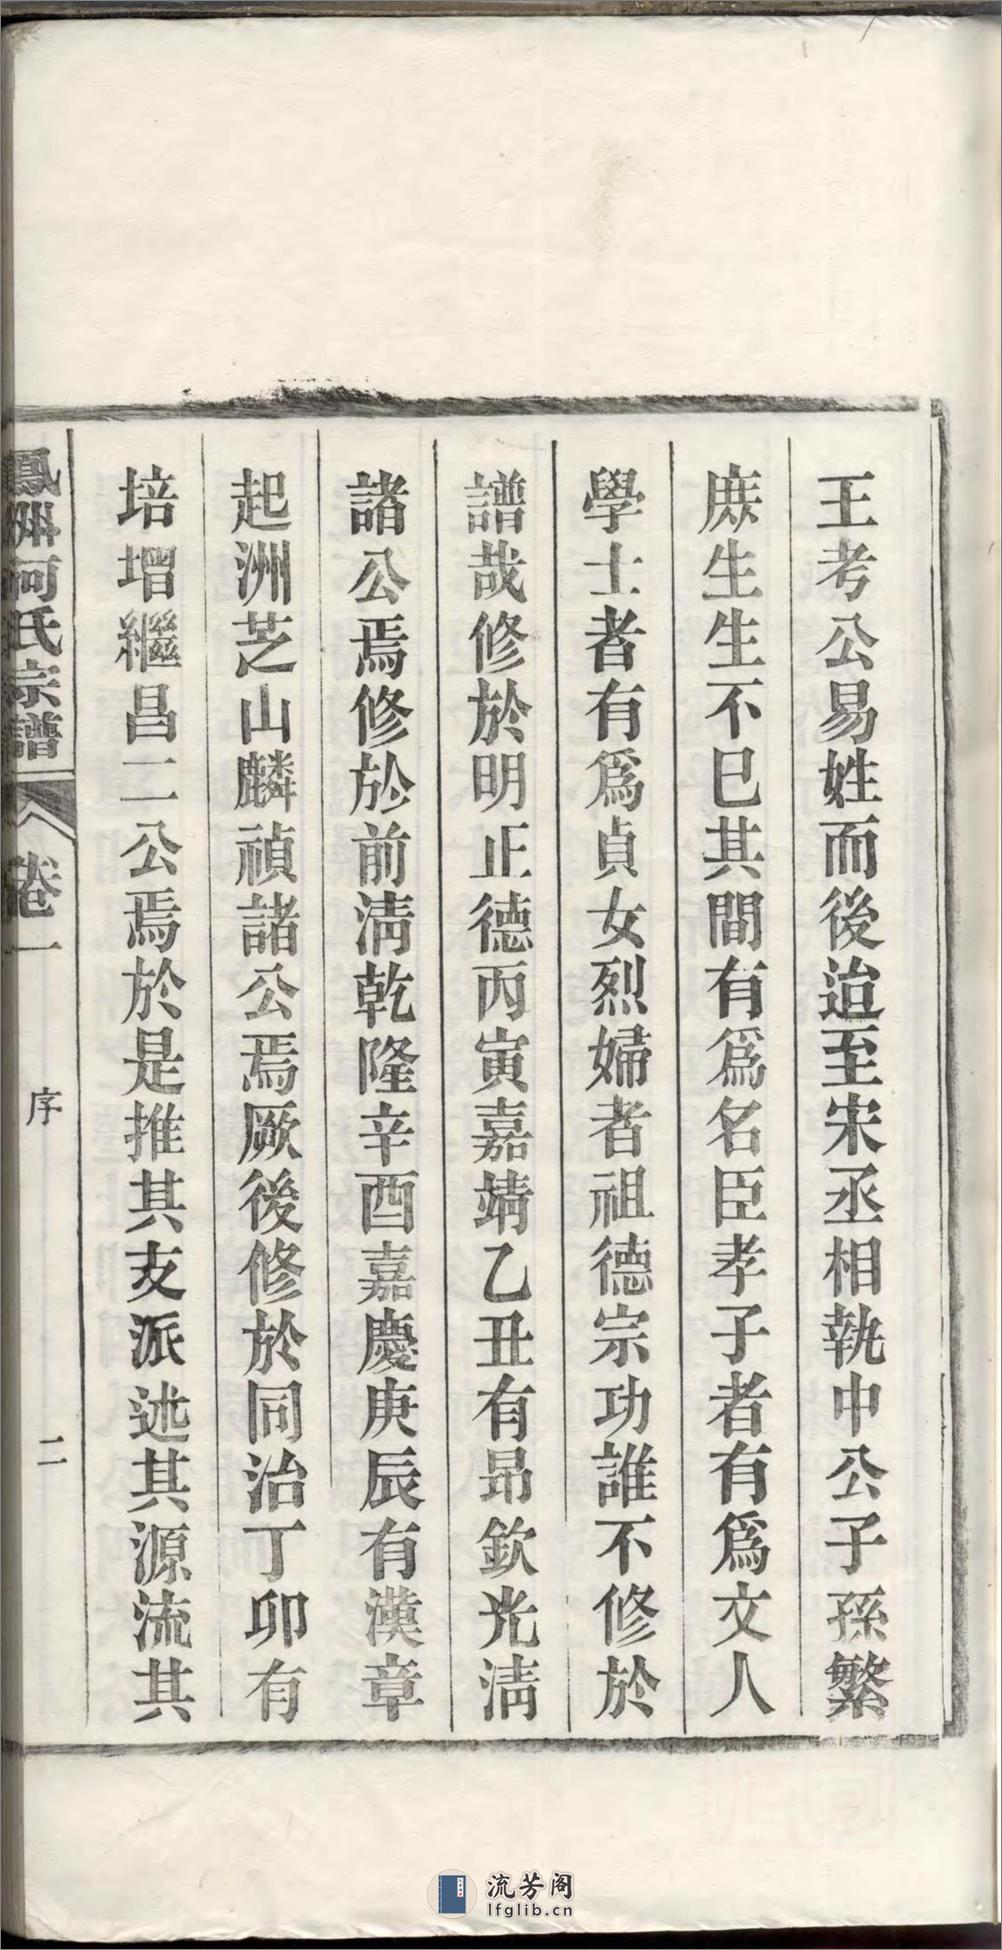 王考公易姓而後迨至宋丞相執中公子孫繁
庶生生不已其間有爲名臣孝子者有爲文人
學士者有爲貞女烈婦者祖德宗功誰不修於
譜哉修於明正德丙寅嘉靖乙丑有昂欽光清
諸公焉修於前清乾隆辛酉嘉慶庚辰有漢章
起洲芝山麟禎諸公焉厥後修於同治丁卯有
培增繼昌二公焉於是推其支派述其源流其
鳳州何氏宗譜 卷一 序 二
流芳阁
lfglib.cn